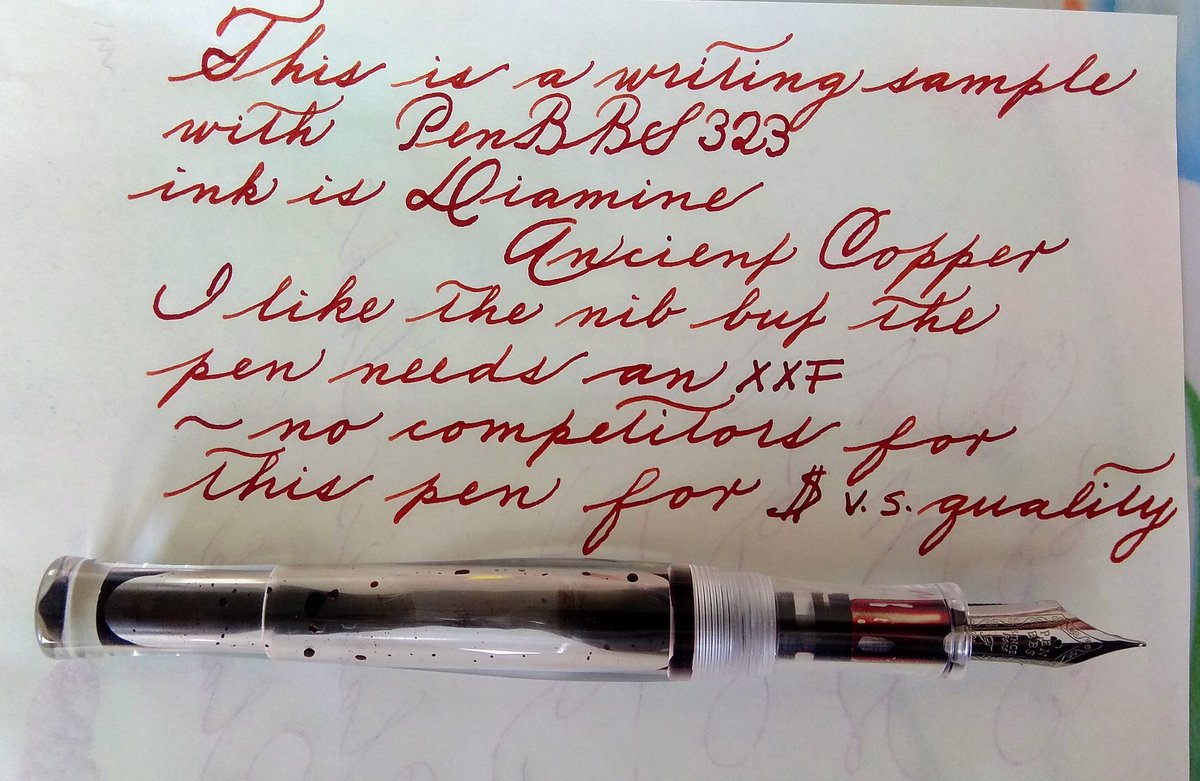 This is a writing sample
with PenBBS 323
ink is Diamine
Ancient Copper
I like the nib but the
pen needs an XXF
~ no competitors for
this pen for $ v.s. quality